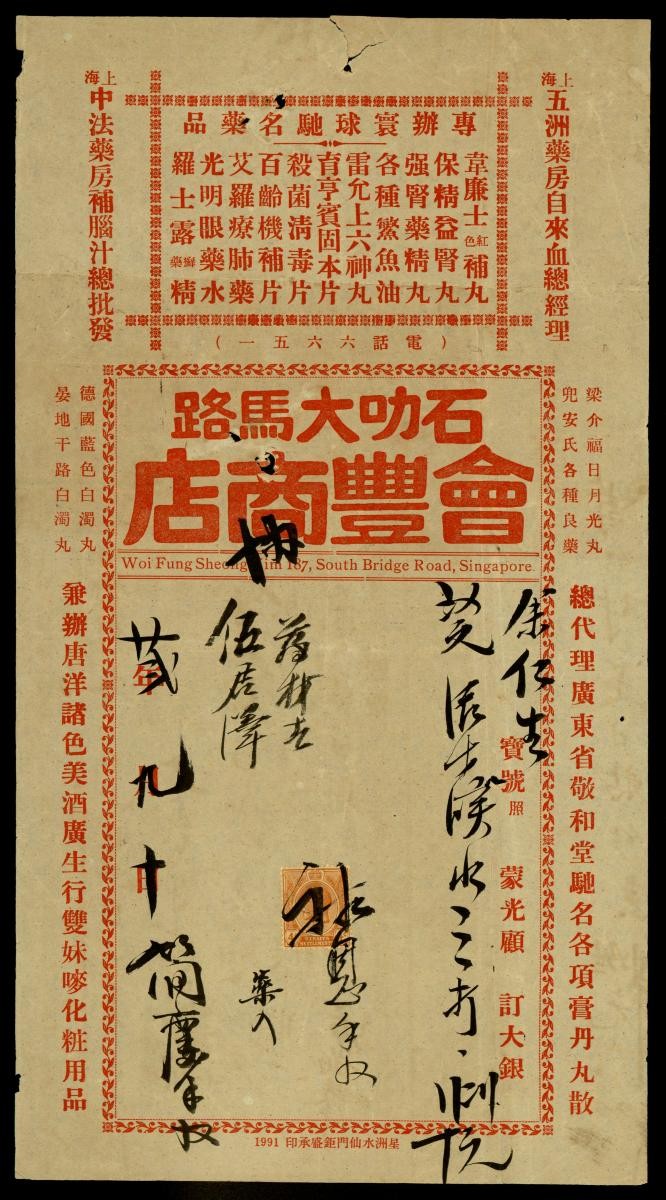 上海
五洲藥房自來血總經理
專辦寰球馳名藥品
韋廉士紅色補丸
保精益腎丸
强腎藥精丸
各種鱉魚油
雷允上六神丸
育亨賓固本片
殺菌淸毒片
百齡機補片
艾羅療肺藥
光明眼藥水
羅士露癬藥精
(電話六六五一)
上海
中法藥房補腦汁總批發
梁介福日月光丸
兜安氏各種良藥
石叻大馬路
會豐商店
Woi Fung Sheong 187, South Bridge Road, Singapore.
德國藍色白濁丸
晏地干路白濁丸
總代理廣東省敬和堂馳名各項膏丹丸散
余仁生
寶號 照
蒙光顧
訂大銀
水三打
伍
STRAITS SETTLEMENTS
藥入
年 九月 十日
兼辦唐洋諸色美酒廣生行雙妹嘜化粧用品
星洲水仙門鉅盛承印 1991